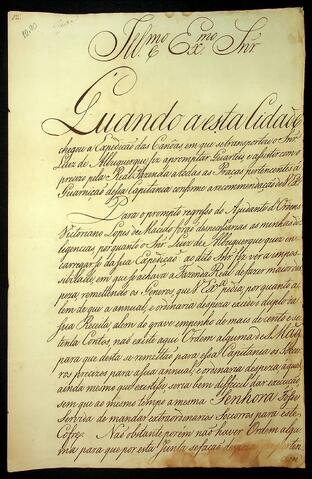 Ill.mo e Ex.mo Snr
Quando a esta Cidade
chegue a Expedição das Canôas, em que se transportou o Snr
Luiz de Albuquerque, fiz apromptar Quarteis, e assistir com o
precizo pela Real Fazenda a todas as Praças pertencentes á
Guarnição dessa Capitania conforme a recomendação de V. Ex
Para o prompto regresso do Ajudante d'Ordens
Victoriano Lopes de Macedo forão desnecessarias as minhas de
ligencias, porquanto o Snr Luiz de Albuquerque quiz en
carregarse da sua Expedição ao dito Snr fiz ver a impos
sibilidade, em que se achava a Fazenda Real de fazer maior des
peza, remettendo os Generos, que V. Ex. pedia, porquanto a
lem de que a annual, e ordinaria despeza excede o duplo da
sua Receita, alem do grave empenho de mais de cento e se
tenta Contos, naõ existe aqui Ordem alguma de S. Mag
para que desta se remettaõ para essa Capitania os Socor
ros precizos para a sua annual, e ordinaria despeza, a qual
ainda mesmo que existisse seria bem difficil dar execuçaõ,
sem que ao mesmo tempo a mesma Senhora fosse
Servida de mandar extraordinarios Socorros para este
Cofre. Naõ obstante porém naõ haver Ordem algu
ma para que por esta Junta se façaõ despezas